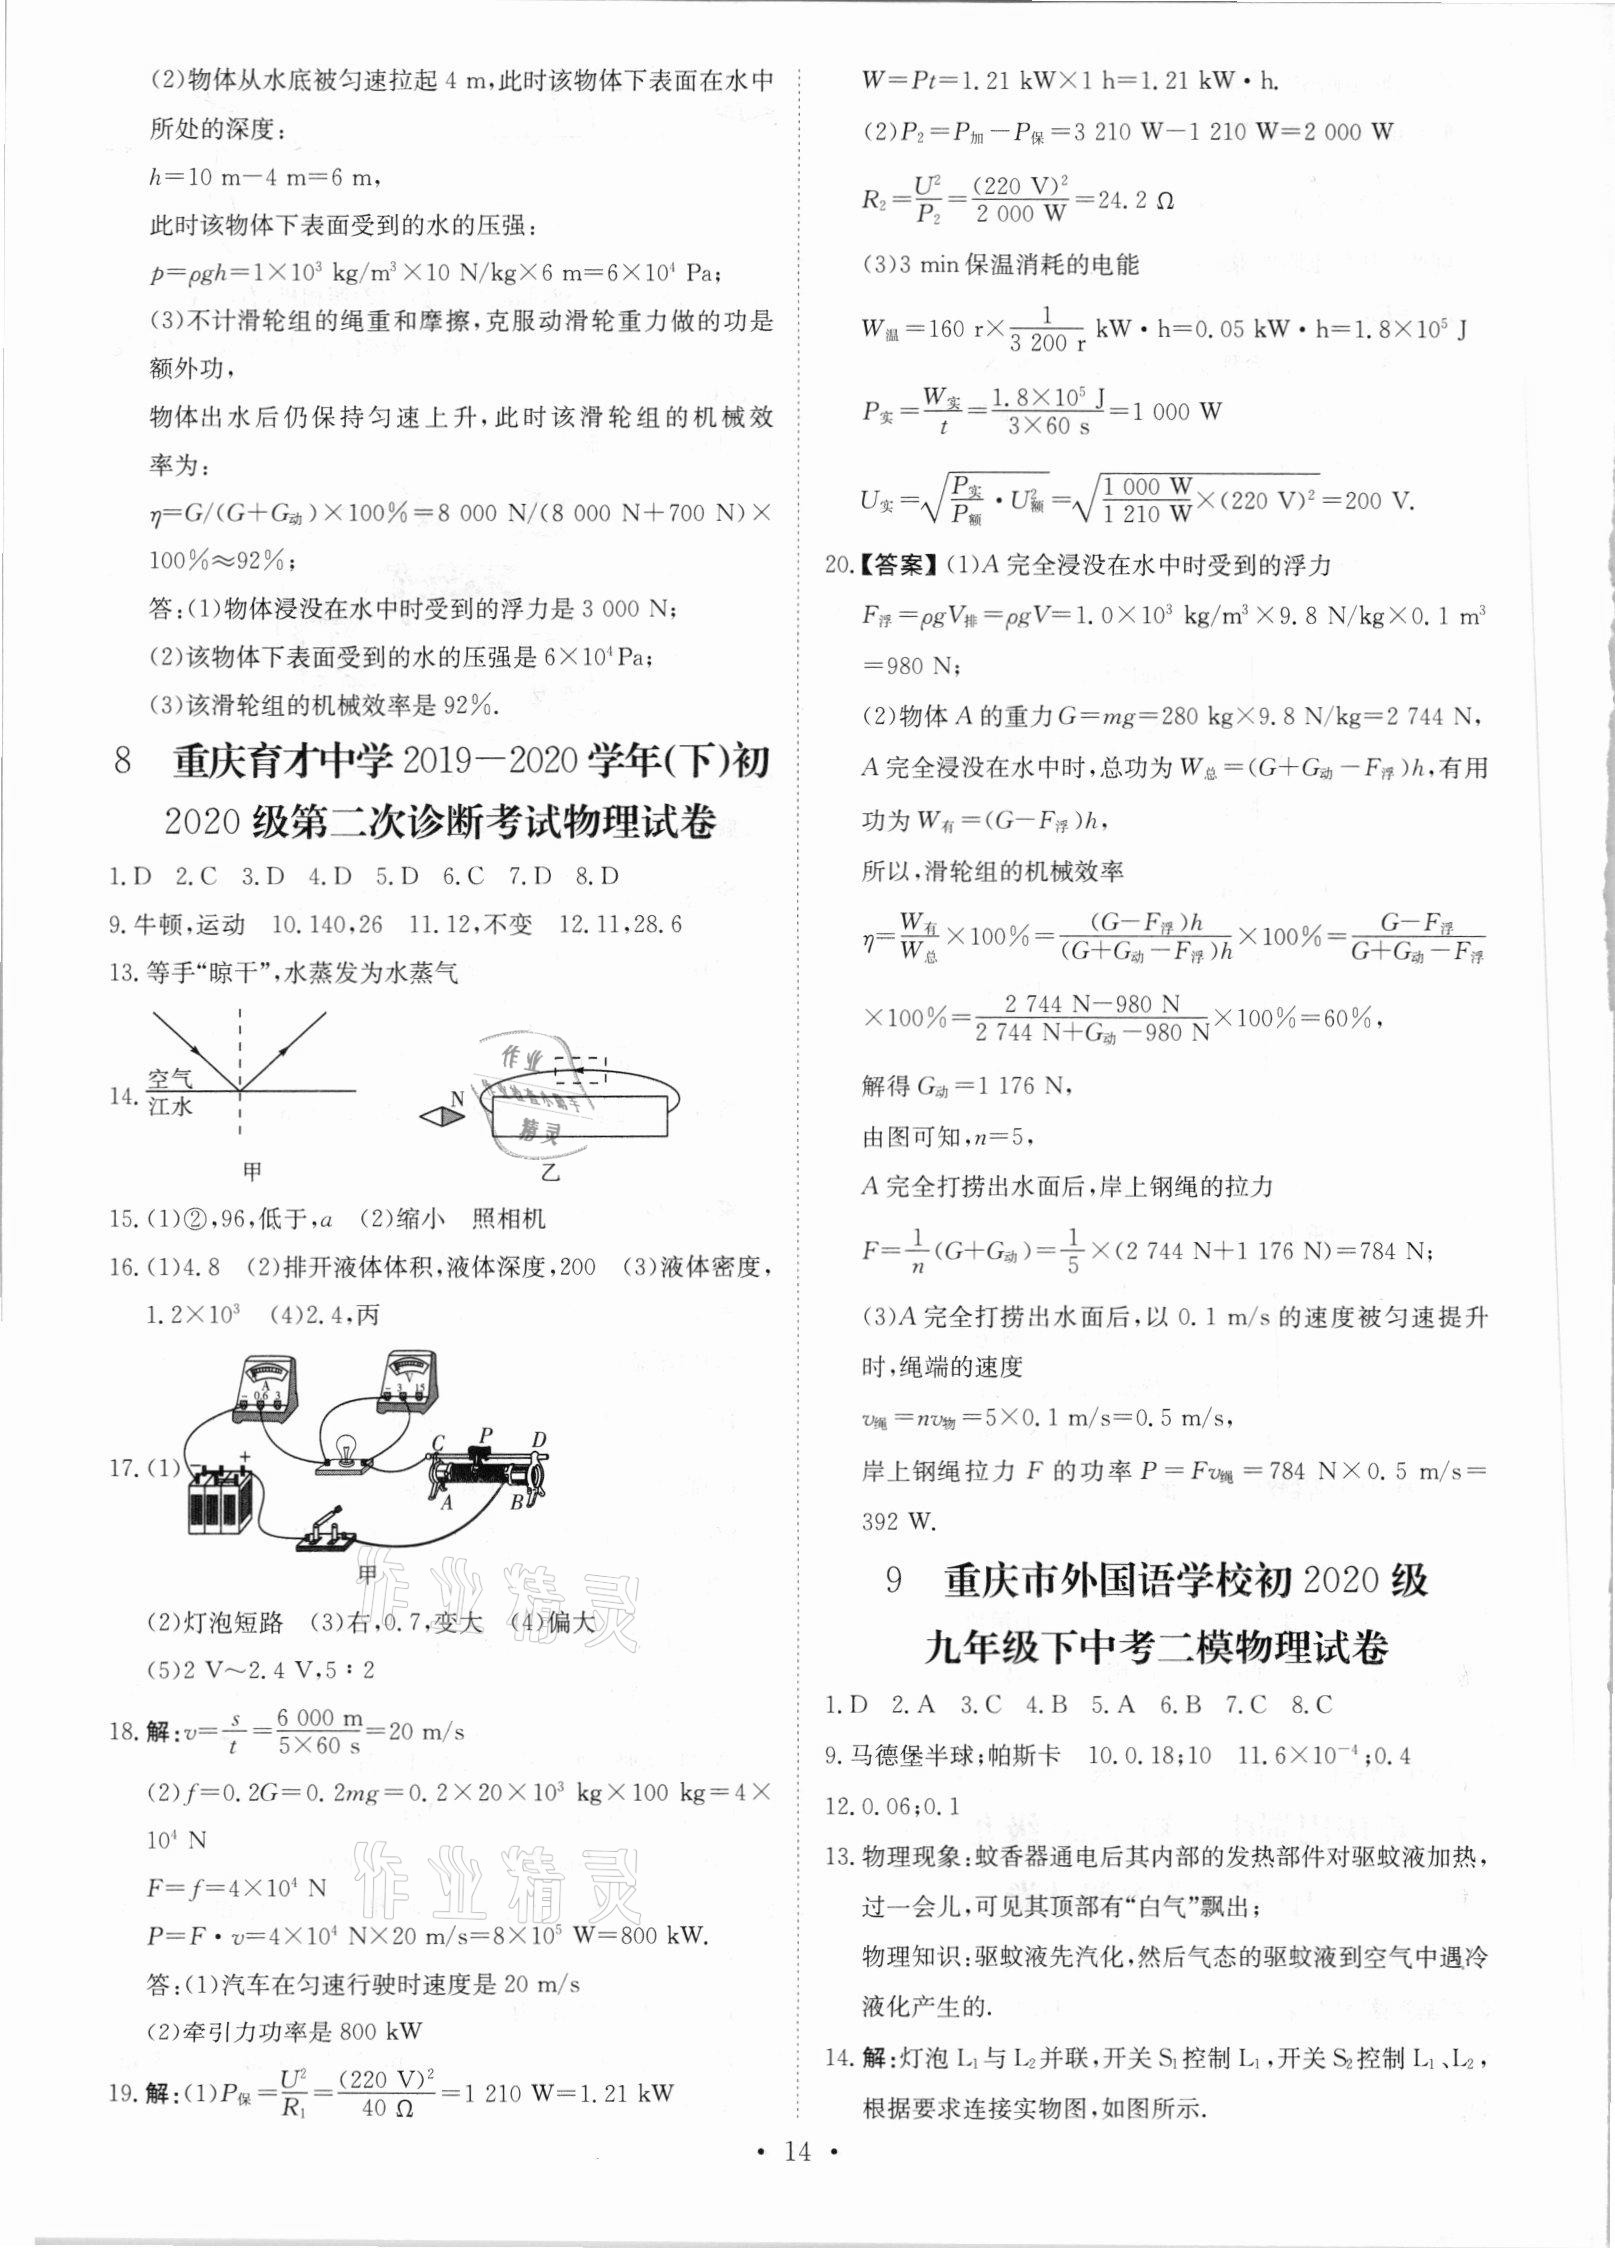 (2)物体从水底被匀速拉起 4 m,此时该物体下表面在水中
所处的深度:
h=10 m-4 m=6 m,
此时该物体下表面受到的水的压强:
p=ρgh=1×10³ kg/m³×10 N/kg×6 m=6×10⁴ Pa;
(3)不计滑轮组的绳重和摩擦,克服动滑轮重力做的功是
额外功,
物体出水后仍保持匀速上升,此时该滑轮组的机械效
率为:
η=G/(G+G动)×100%=8 000 N/(8 000 N+700 N)×
100%≈92%;
答:(1)物体浸没在水中时受到的浮力是 3 000 N;
(2)该物体下表面受到的水的压强是 6×10⁴Pa;
(3)该滑轮组的机械效率是 92%.
8 重庆育才中学 2019—2020 学年(下)初
2020 级第二次诊断考试物理试卷
1. D 2. C 3. D 4. D 5. D 6. C 7. D 8. D
9. 牛顿,运动 10. 140,26 11. 12,不变 12. 11,28.6
13. 等手“晾干”,水蒸发为水蒸气
14.
空气
江水
甲
N
乙
作业
作业检查小助手
精灵
15. (1)②,96,低于,a (2)缩小 照相机
16. (1)4.8 (2)排开液体体积,液体深度,200 (3)液体密度,
1.2×10³ (4)2.4,丙
17. (1)
A
- 0.6 3
V
- 3 15
- +
C P D
A B
甲
(2)灯泡短路 (3)右,0.7,变大 (4)偏大
(5)2 V~2.4 V,5∶2
18. 解:v=s/t=6 000 m/(5×60 s)=20 m/s
(2)f=0.2G=0.2mg=0.2×20×10³ kg×100 kg=4×
10⁴ N
F=f=4×10⁴ N
P=F·v=4×10⁴ N×20 m/s=8×10⁵ W=800 kW.
答:(1)汽车在匀速行驶时速度是 20 m/s
(2)牵引力功率是 800 kW
19. 解:(1)P保=U²/R₁=(220 V)²/40 Ω=1 210 W=1.21 kW
作业精灵
作业精灵
W=Pt=1.21 kW×1 h=1.21 kW·h.
(2)P₂=P加-P保=3 210 W-1 210 W=2 000 W
R₂=U²/P₂=(220 V)²/2 000 W=24.2 Ω
(3)3 min 保温消耗的电能
W温=160 r×1/(3 200 r) kW·h=0.05 kW·h=1.8×10⁵ J
P实=W实/t=1.8×10⁵ J/(3×60 s)=1 000 W
U实=√(P实/P额·U²额)=√(1 000 W/1 210 W×(220 V)²)=200 V.
20.【答案】(1)A 完全浸没在水中时受到的浮力
F浮=ρgV排=ρgV=1.0×10³ kg/m³×9.8 N/kg×0.1 m³
=980 N;
(2)物体 A 的重力G=mg=280 kg×9.8 N/kg=2 744 N,
A 完全浸没在水中时,总功为 W总=(G+G动-F浮)h,有用
功为 W有=(G-F浮)h,
所以,滑轮组的机械效率
η=W有/W总×100%=(G-F浮)h/(G+G动-F浮)h×100%=(G-F浮)/(G+G动-F浮)
×100%=(2 744 N-980 N)/(2 744 N+G动-980 N)×100%=60%,
解得 G动=1 176 N,
由图可知,n=5,
A 完全打捞出水面后,岸上钢绳的拉力
F=1/n(G+G动)=1/5×(2 744 N+1 176 N)=784 N;
(3)A 完全打捞出水面后,以 0.1 m/s 的速度被匀速提升
时,绳端的速度
v绳=nv物=5×0.1 m/s=0.5 m/s,
岸上钢绳拉力 F 的功率 P=Fv绳=784 N×0.5 m/s=
392 W.
9 重庆市外国语学校初 2020 级
九年级下中考二模物理试卷
1. D 2. A 3. C 4. B 5. A 6. B 7. C 8. C
9. 马德堡半球;帕斯卡 10. 0.18;10 11. 6×10⁻⁴;0.4
12. 0.06;0.1
13. 物理现象:蚊香器通电后其内部的发热部件对驱蚊液加热,
过一会儿,可见其顶部有“白气”飘出;
物理知识:驱蚊液先汽化,然后气态的驱蚊液到空气中遇冷
液化产生的.
14. 解:灯泡 L₁与 L₂并联,开关 S₁控制 L₁,开关 S₂控制 L₁、L₂,
根据要求连接实物图,如图所示.
· 14 ·